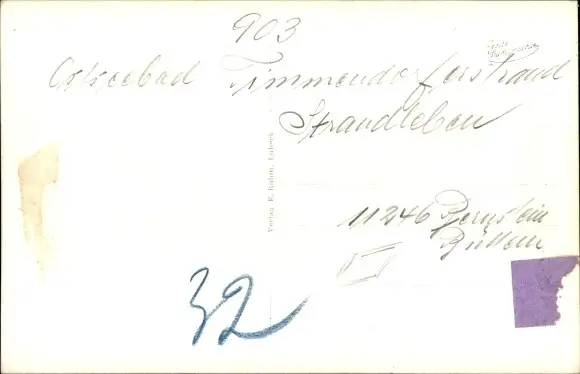 903
Ostseebad Timmendorferstrand
Strandleben
Verlag E. Rohm, Lübeck
11246 Bernstein
32